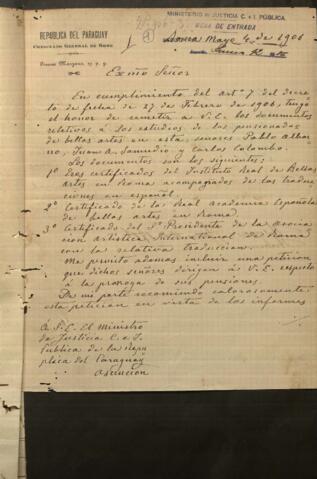 MINISTERIO DE JUSTICIA C. é I. PÚBLICA
MESA DE ENTRADA
REPÚBLICA DEL PARAGUAY
CONSULADO GENERAL EN ROMA
Roma Mayo 4 de 1906
Exmo Señor
En cumplimiento del art. 7 del decre
to de fecha de 27 de Febrero de 1906, tengo
el honor de remitir a V. E. los documentos
relativos á los estudios de los pensionados
de bellas artes en esta, señores Pablo Albor
no, Juan A. Samudio y Carlos Colombo.
Los documentos son los siguientes:
1º Tres certificados del Instituto Real de Bellas
Artes en Roma acompagnados de las traduc
ciones en español;
2º Certificado de la Real Academia Española
de bellas artes en Roma.
3º Certificado del Sr. Presidente de la Asocia
cion Artistica Internacional de Roma
con la relativa traduccion.
Me permito además incluir una peticion
que dichos señores dirigen á V. E. respecto
á la proroga de sus pensiones.
De mi parte recomiendo calorosamente
esta peticion en virtud de los informes
A S. E. El Ministro
de Justicia C. e I.
Publica de la Repu
blica del Paraguay
Asuncion